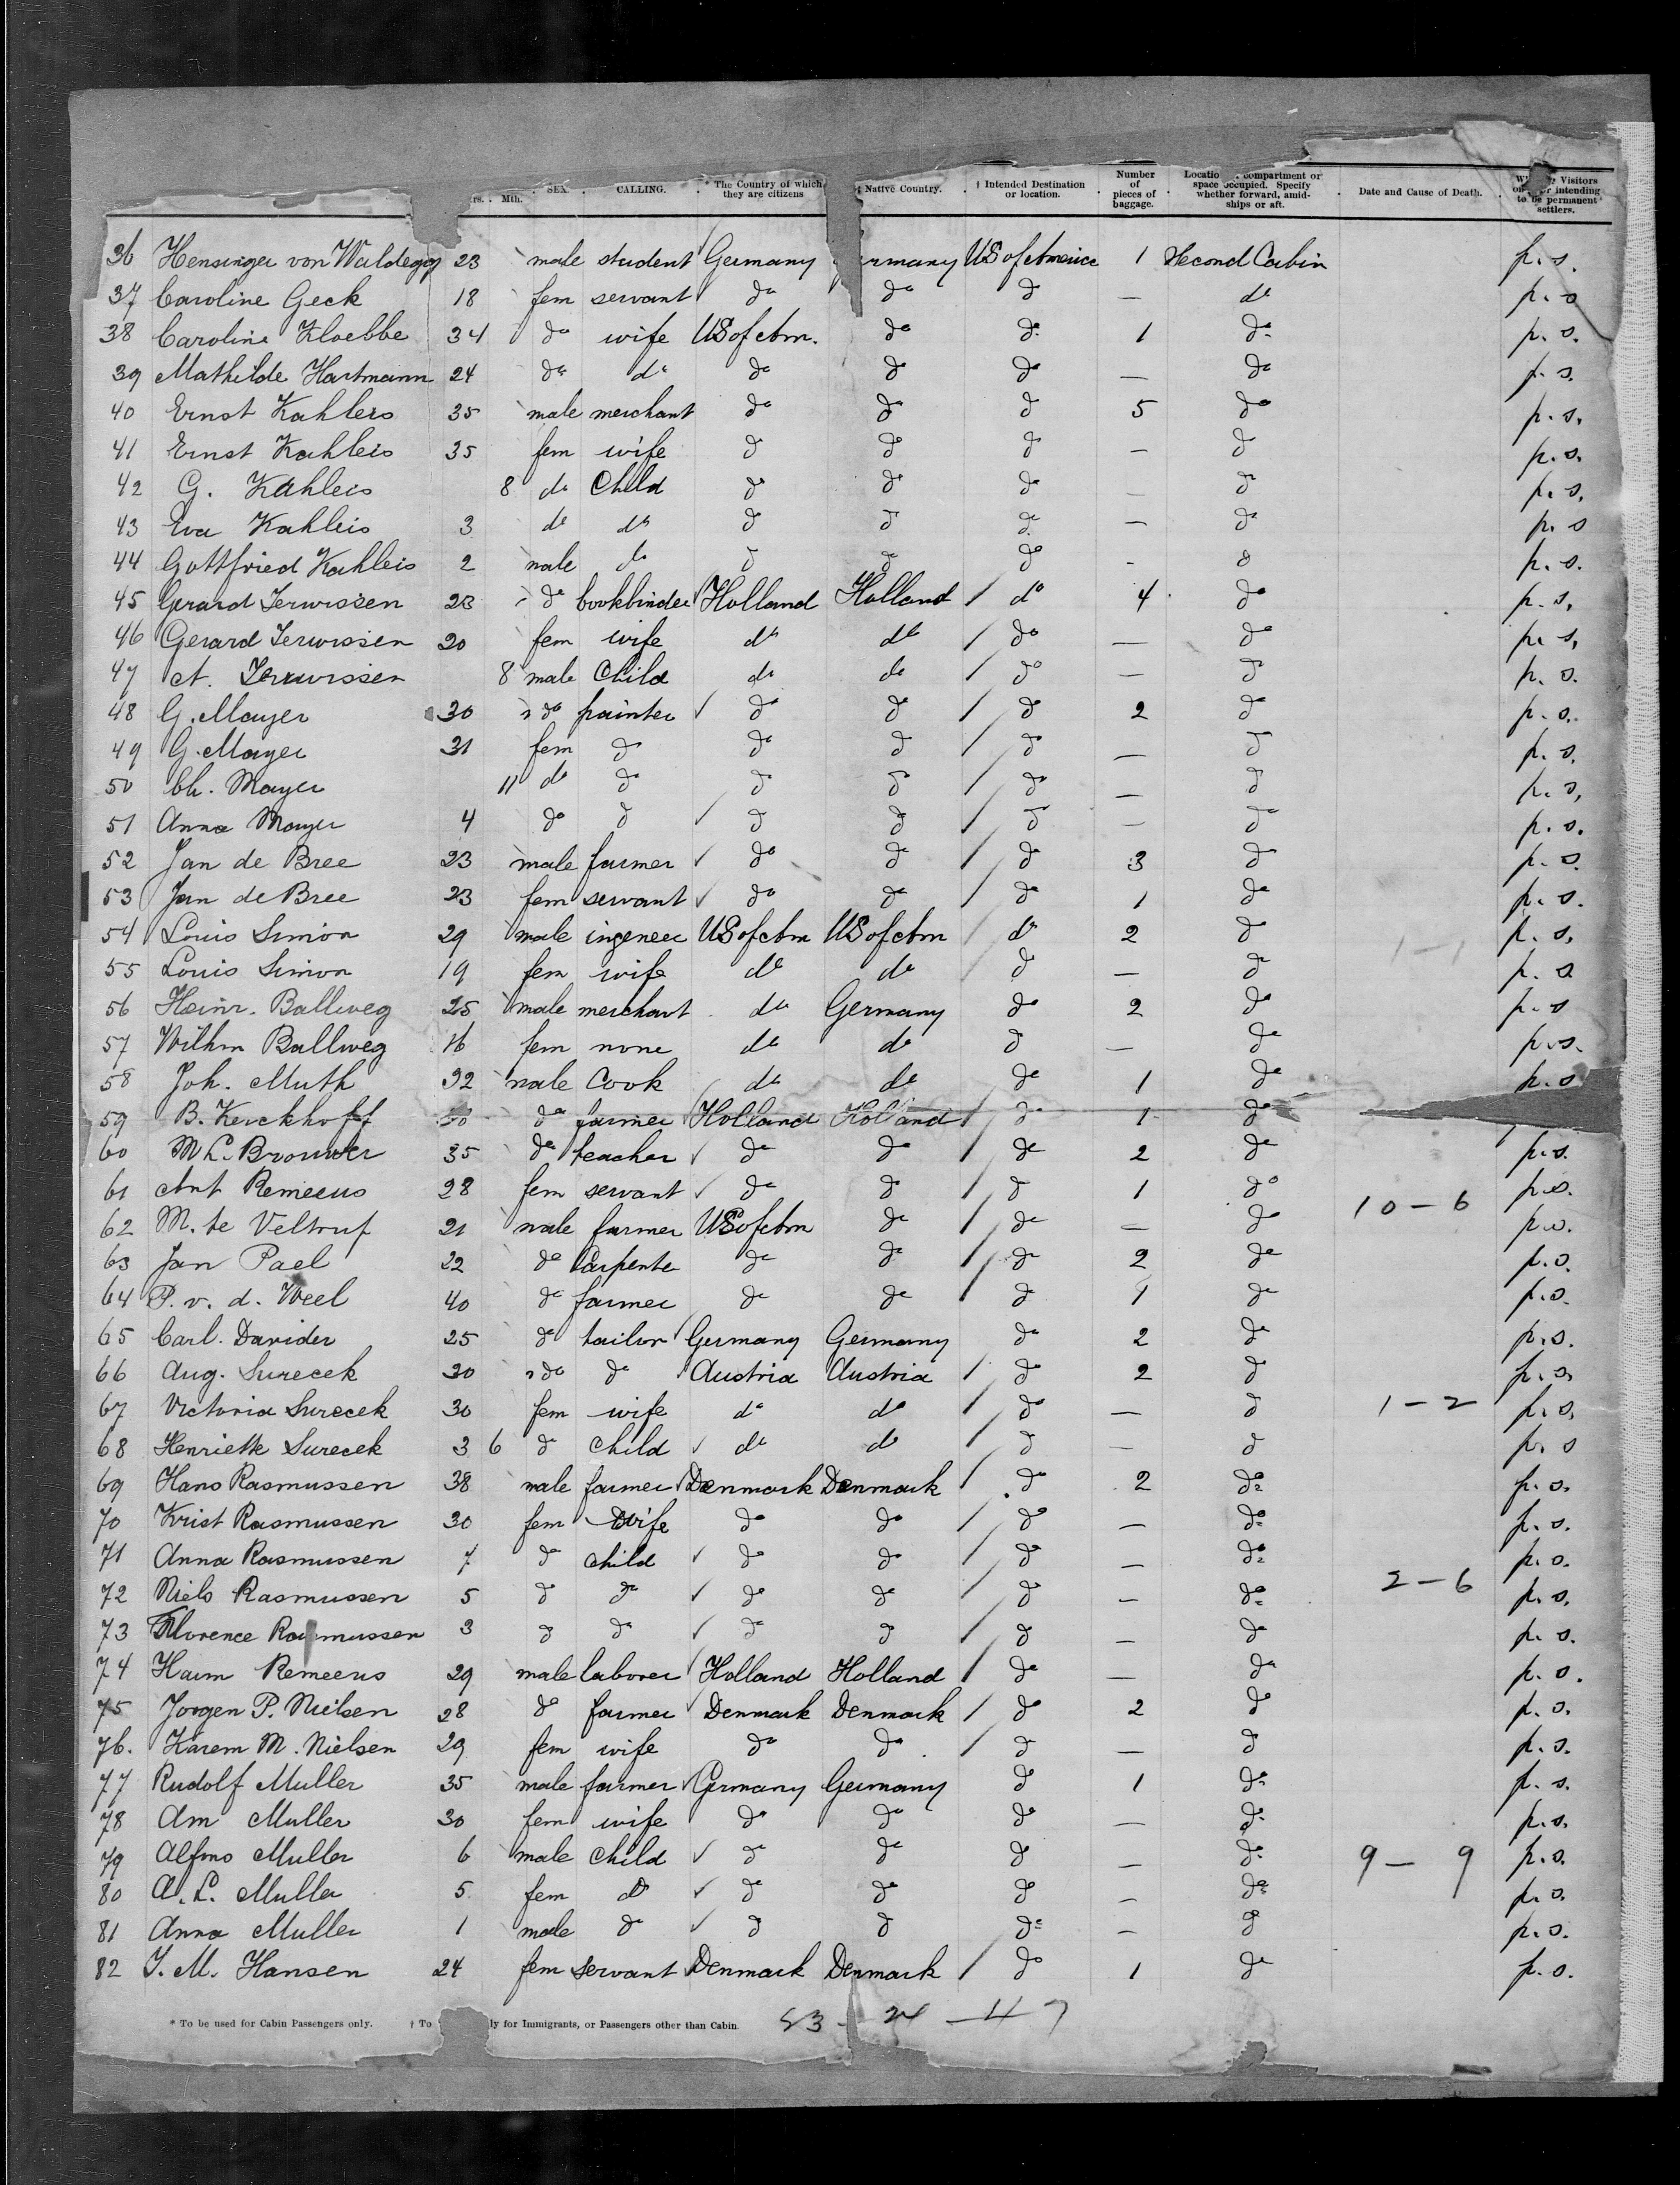 rs. Mth. SEX. CALLING. * The Country of which they are citizens Native Country. † Intended Destination or location. Number of pieces of baggage. compartment or space occupied. Specify whether forward, amidships or aft. Date and Cause of Death. Visitors intending to be permanent settlers.
36 Hensinger von Waldegg 23 male student Germany rmany US of America 1 Second Cabin p. s.
37 Caroline Geck 18 fem servant do do do — do p. s
38 Caroline Kloebbe 34 do wife US of Am. do do 1 do p. s.
39 Mathilde Hartmann 24 do do do do do — do p. s.
40 Ernst Kahleis 35 male merchant do do do 5 do p. s.
41 Ernst Kahleis 35 fem wife do do do — do p. s.
42 G. Kahleis 8 do Child do do do — do p. s.
43 Eva Kahleis 3 do do do do do — do p. s
44 Gottfried Kahleis 2 male do do do do - do p. s.
45 Gerard Terwissen 23 do bookbinder Holland Holland / do 4 do p. s.
46 Gerard Terwissen 20 fem wife do do / do — do p. s.
47 A. Terwissen 8 male Child do do / do — do p. s.
48 G. Mayer 30 do painter do do / do 2 do p. s.
49 G. Mayer 31 fem do do do / do — do p. s.
50 Ch. Mayer 11 do do do do / do — do p. s.
51 Anna Mayer 4 do do do do / do — do p. s.
52 Jan de Bree 23 male farmer do do / do 3 do p. s.
53 Jan de Bree 23 fem servant do do / do 1 do p. s.
54 Louis Simon 29 male ingeneer US of Am US of Am / do 2 do 1-1 p. s.
55 Louis Simon 19 fem wife do do / do — do p. s.
56 Heinr. Ballweg 25 male merchant do Germany do 2 do p. s
57 Wilhm Ballweg 16 fem none do do do — do p. s.
58 Joh. Muth 32 male Cook do do do 1 do p. s
59 B. Kerckhoff do farmer Holland Holland / do 1 do
60 M L. Brouwer 35 do teacher do do / do 2 do p. s.
61 Ant Remeeus 28 fem servant do do / do 1 do p. s.
62 M. te Veltruf 21 male farmer US of Am do / do — do 10 - 6 p. s.
63 Jan Pael 22 do Carpenter do do / do 2 do p. s.
64 P. v. d. Weel 40 do farmer do do / do 1 do p. s.
65 Carl. Davider 25 do tailor Germany Germany do 2 do p. s.
66 Aug. Surecek 30 do do Austria Austria / do 2 do p. s.
67 Victoria Surecek 30 fem wife do do / do — do 1 - 2 p. s.
68 Henriette Surecek 3 6 do child do do / do — do p. s
69 Hans Rasmussen 38 male farmer Denmark Denmark / do 2 do p. s.
70 Krist Rasmussen 30 fem wife do do / do — do p. s.
71 Anna Rasmussen 7 do child do do / do — do p. s.
72 Niels Rasmussen 5 do do do do / do — do 2 - 6 p. s.
73 Florence Rasmussen 3 do do do do / do — do p. s.
74 Harm Remeeus 29 male laborer Holland Holland / do — do p. s.
75 Jorgen P. Nielsen 28 do farmer Denmark Denmark / do 2 do p. s.
76. Karem M. Nielsen 29 fem wife do do / do — do p. s.
77 Rudolf Muller 35 male farmer Germany Germany do 1 do p. s.
78 Am Muller 30 fem wife do do do — do p. s.
79 Alfons Muller 6 male child do do do — do 9 - 9 p. s.
80 A. L. Muller 5 fem do do do do — do p. s.
81 Anna Muller 1 male do do do do — do p. s.
82 J. M. Hansen 24 fem servant Denmark Denmark / do 1 do p. s.
* To be used for Cabin Passengers only. † To ly for Immigrants, or Passengers other than Cabin. 23 - 24 - 47